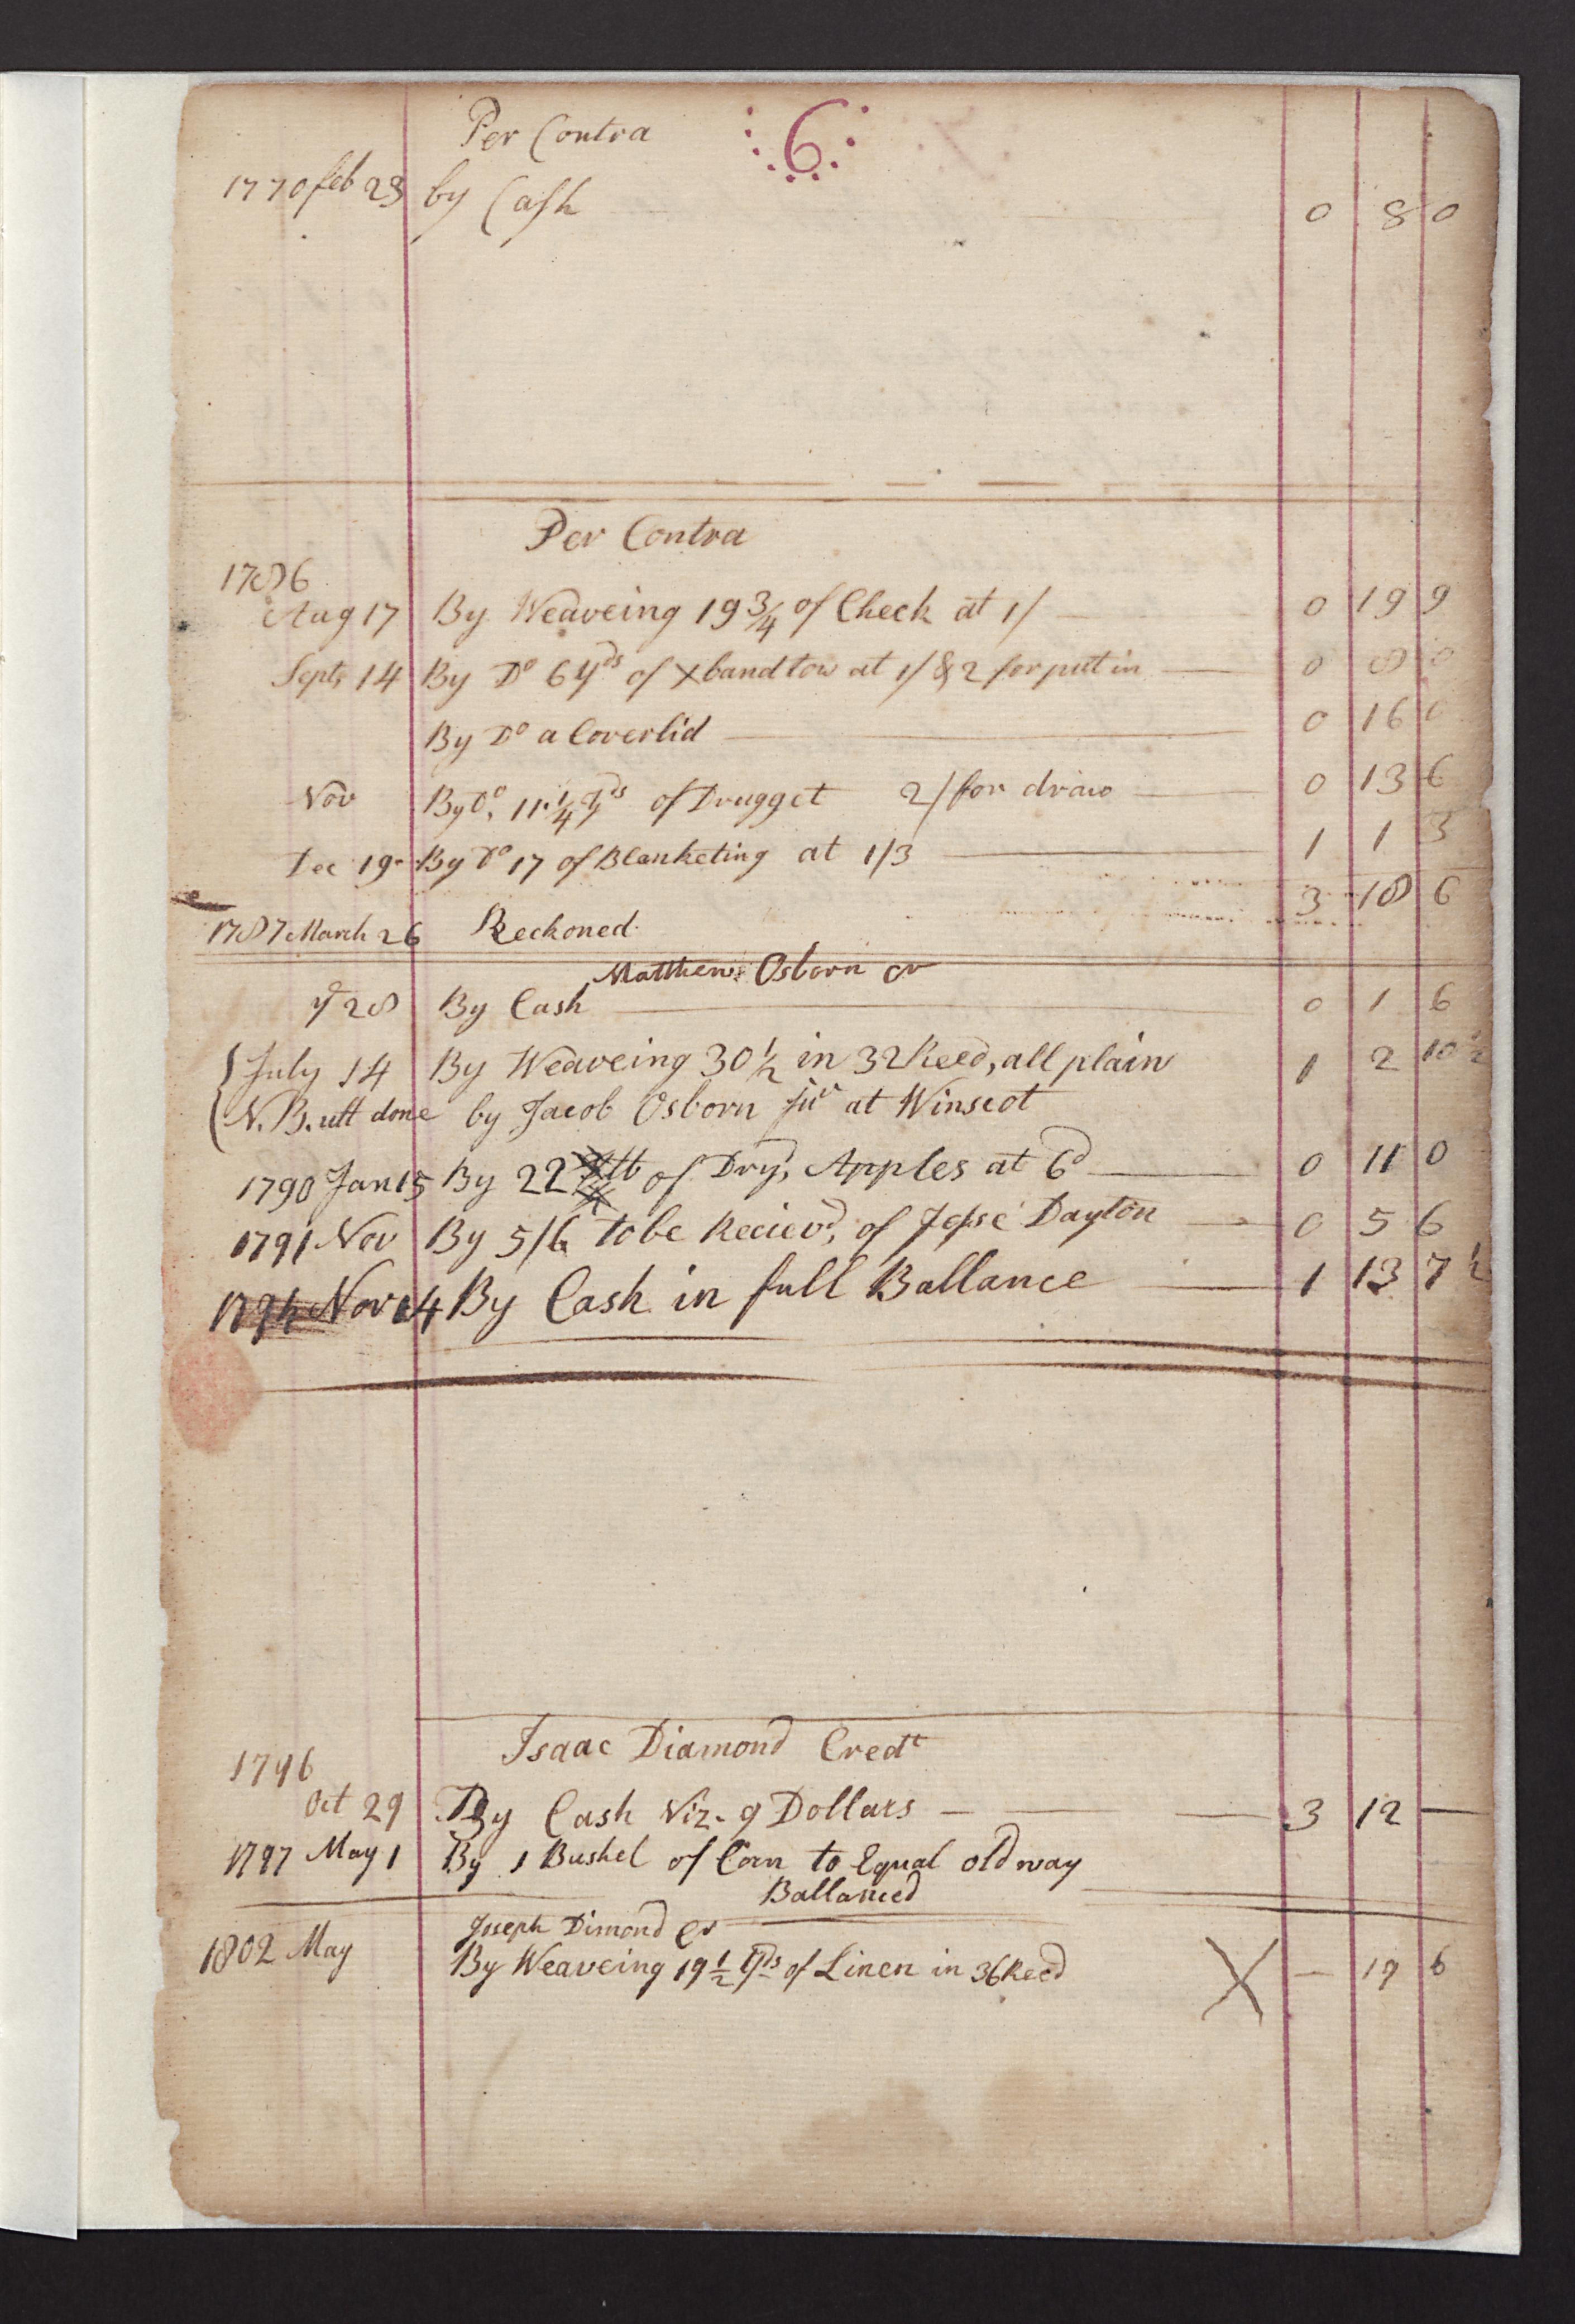 Per Contra :6:
1770 feb 23 by Cash 0 8 0
Per Contra
1786
Aug 17 By Weaveing 19 3/4 of Check at 1/ 0 19 9
Sept 14 By Do 6 yds of X band tow at 1/ & 2 for put in 0 8 0
By Do a Coverlid 0 16 0
Nov By Do, 11 1/4 yds of Drugget 2/ for draw 0 13 6
Dec 19 By Do 17 of Blanketing at 1/3 1 1 3
3 18 6
1787 March 26 Reckoned
Matthew Osborn cr
28 By Cash 0 1 6
July 14 By Weaveing 30 1/2 in 32 Reed, all plain 1 2 10 1/2
N.B. utt done by Jacob Osborn Jur at Winscot
1790 Jan 15 By 22 lb of Dryd, Apples at 6d 0 11 0
1791 Nov By 5/6 to be Recievd, of Jesse Dayton 0 5 6
Nov 14 By Cash in full Ballance 1 13 7 1/2
Isaac Diamond Credt
1796
Oct 29 By Cash Viz. 9 Dollars 3 12 —
1797 May 1 By 1 Bushel of Corn to Equal old way
Ballanced
Joseph Dimond Cr
1802 May By Weaveing 19 1/2 yds of Linen in 36 Reed X — 19 6